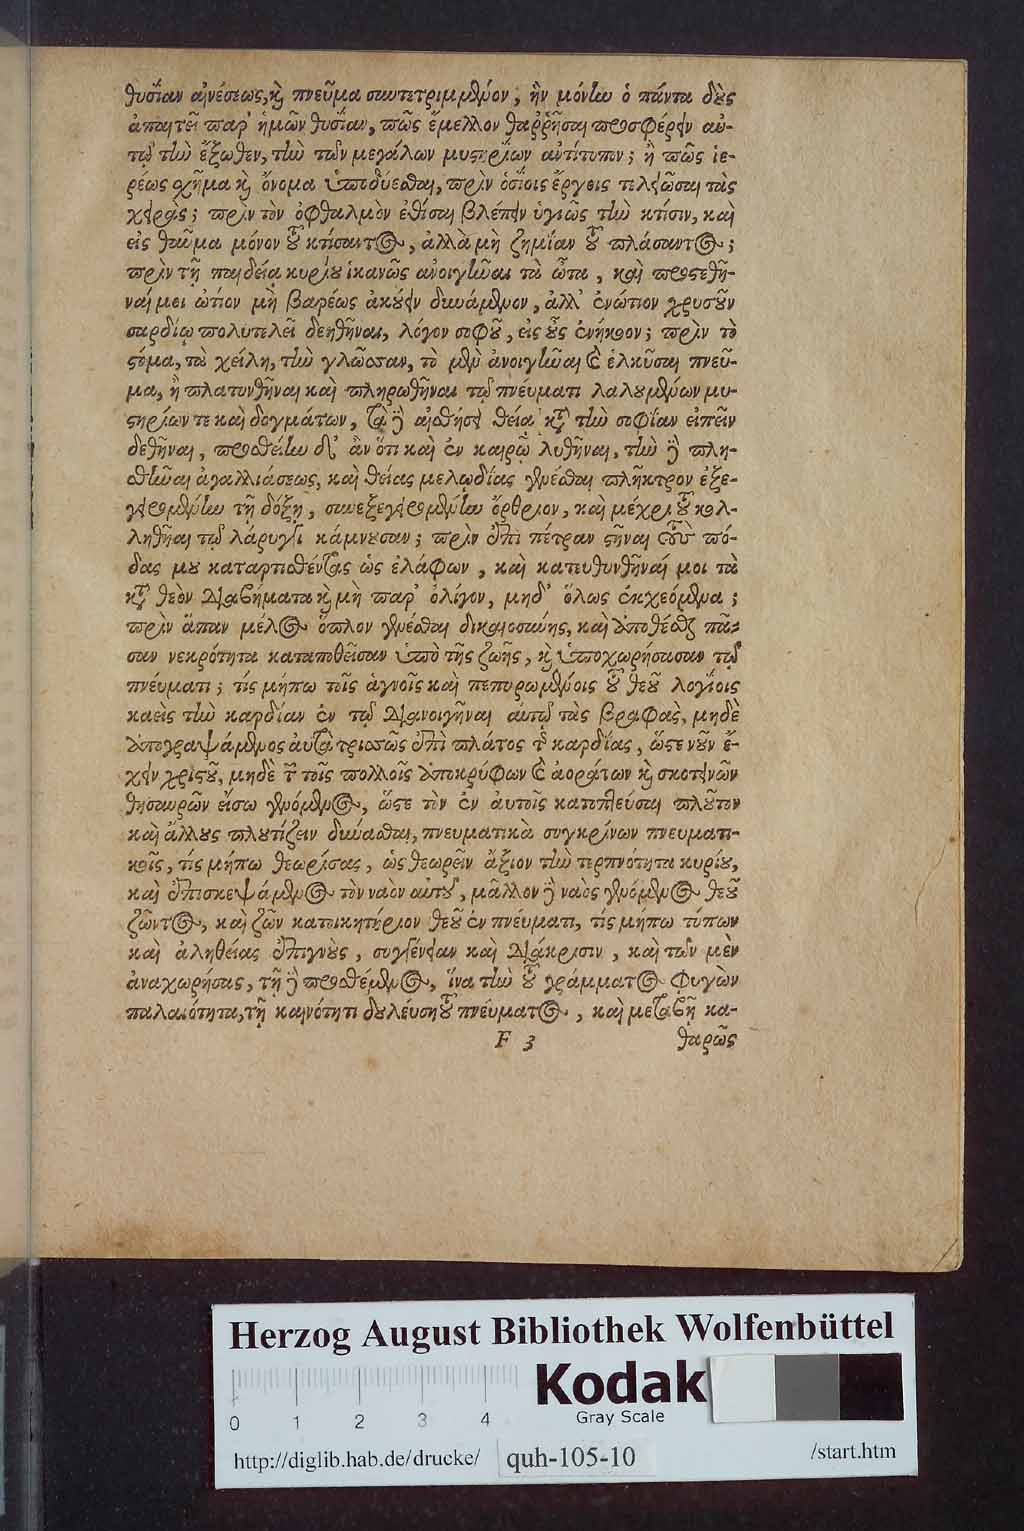 θυσίαν αἰνέσεως, καὶ πνεῦμα συντετριμμένον, ἣν μόνην ὁ πάντα δοὺς
ἀπαιτεῖ παρ' ἡμῶν θυσίαν, πῶς ἔμελλον θαῤῥῆσαι προσφέρειν αὐ-
τῷ τὴν ἔξωθεν, τὴν τῶν μεγάλων μυστηρίων ἀντίτυπον; ἢ πῶς ἱε-
ρέως σχῆμα καὶ ὄνομα ὑποδύεσθαι, πρὶν ὁσίοις ἔργοις τελειῶσαι τὰς
χεῖρας; πρὶν τὸν ὀφθαλμὸν ἐθίσαι βλέπειν ὑγιῶς τὴν κτίσιν, καὶ
εἰς θαῦμα μόνον τοῦ κτίσαντος, ἀλλὰ μὴ ζημίαν τοῦ πλάσαντος;
πρὶν τῇ παιδείᾳ κυρίου ἱκανῶς ἀνοιγῆναι τὰ ὦτα, καὶ προστεθῆ-
ναί μοι ὠτίον μὴ βαρέως ἀκούειν δυνάμενον, ἀλλ' ἐνώτιον χρυσοῦν
σαρδίῳ πολυτελεῖ δεηθῆναι, λόγον σοφοῦ, εἰς οὖς ἐνήκοον; πρὶν τὸ
στόμα, τὰ χείλη, τὴν γλῶσσαν, τὸ μὲν ἀνοιγῆναι καὶ ἑλκῦσαι πνεῦ-
μα, ἢ πλατυνθῆναι καὶ πληρωθῆναι τῷ πνεύματι λαλουμένων μυ-
στηρίων τε καὶ δογμάτων, τὰ δὲ αἰσθήσει θείᾳ κατὰ τὴν σοφίαν εἰπεῖν
δεθῆναι, προσθείην δ' ἂν ὅτι καὶ ἐν καιρῷ λυθῆναι, τὴν δὲ πλη-
σθῆναι ἀγαλλιάσεως, καὶ θείας μελῳδίας γενέσθαι πλῆκτρον ἐξε-
γειρομένην τῇ δόξῃ, συνεξεγειρομένην ὄρθριον, καὶ μέχρι τοῦ κολ-
ληθῆναι τῷ λάρυγγι κάμνουσαν; πρὶν ἐπὶ πέτραν στῆναι τοὺς πό-
δας μου καταρτισθέντας ὡς ἐλάφων, καὶ κατευθυνθῆναί μοι τὰ
κατὰ θεὸν διαβήματα καὶ μὴ παρ' ὀλίγον, μηδ' ὅλως ἐκχεόμενα;
πρὶν ἅπαν μέλος ὅπλον γενέσθαι δικαιοσύνης, καὶ ἀποθέσθαι πᾶ-
σαν νεκρότητα καταποθεῖσαν ὑπὸ τῆς ζωῆς, καὶ ὑποχωρήσασαν τῷ
πνεύματι; τίς μήπω τοῖς ἁγνοῖς καὶ πεπυρωμένοις τοῦ θεοῦ λογίοις
καεὶς τὴν καρδίαν ἐν τῷ διανοιγῆναι αὐτῷ τὰς γραφὰς, μηδὲ
ἀπογραψάμενος αὐτὰ τρισσῶς ἐπὶ πλάτος τῆς καρδίας, ὥστε νοῦν ἔ-
χειν χριστοῦ, μηδὲ τῶν τοῖς πολλοῖς ἀποκρύφων καὶ ἀοράτων καὶ σκοτεινῶν
θησαυρῶν εἴσω γενόμενος, ὥστε τὸν ἐν αὐτοῖς κατοπτεῦσαι πλοῦτον
καὶ ἄλλους πλουτίζειν δύνασθαι, πνευματικὰ συγκρίνων πνευματι-
κοῖς, τίς μήπω θεωρήσας, ὡς θεωρεῖν ἄξιον τὴν τερπνότητα κυρίου,
καὶ ἐπισκεψάμενος τὸν ναὸν αὐτοῦ, μᾶλλον δὲ ναὸς γενόμενος θεοῦ
ζῶντος, καὶ ζῶν κατοικητήριον θεοῦ ἐν πνεύματι, τίς μήπω τύπων
καὶ ἀληθείας ἐπιγνοὺς, συγγένειαν καὶ διάκρισιν, καὶ τῶν μὲν
ἀναχωρήσας, τῇ δὲ προσθέμενος, ἵνα τὴν τοῦ γράμματος φυγὼν
παλαιότητα, τῇ καινότητι δουλεύσῃ τοῦ πνεύματος, καὶ μεταβῇ κα-
F 3 θαρῶς
Herzog August Bibliothek Wolfenbüttel
Kodak
Gray Scale
0 1 2 3 4
http://diglib.hab.de/drucke/ quh-105-10 /start.htm